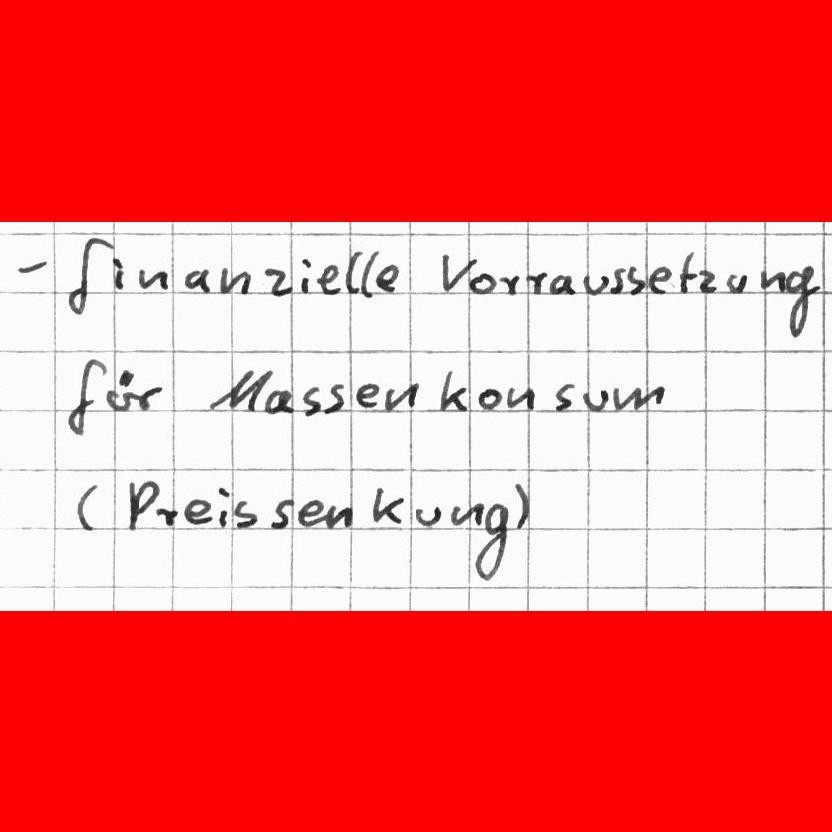 - finanzielle Vorraussetzung
für Massenkonsum
(Preissenkung)